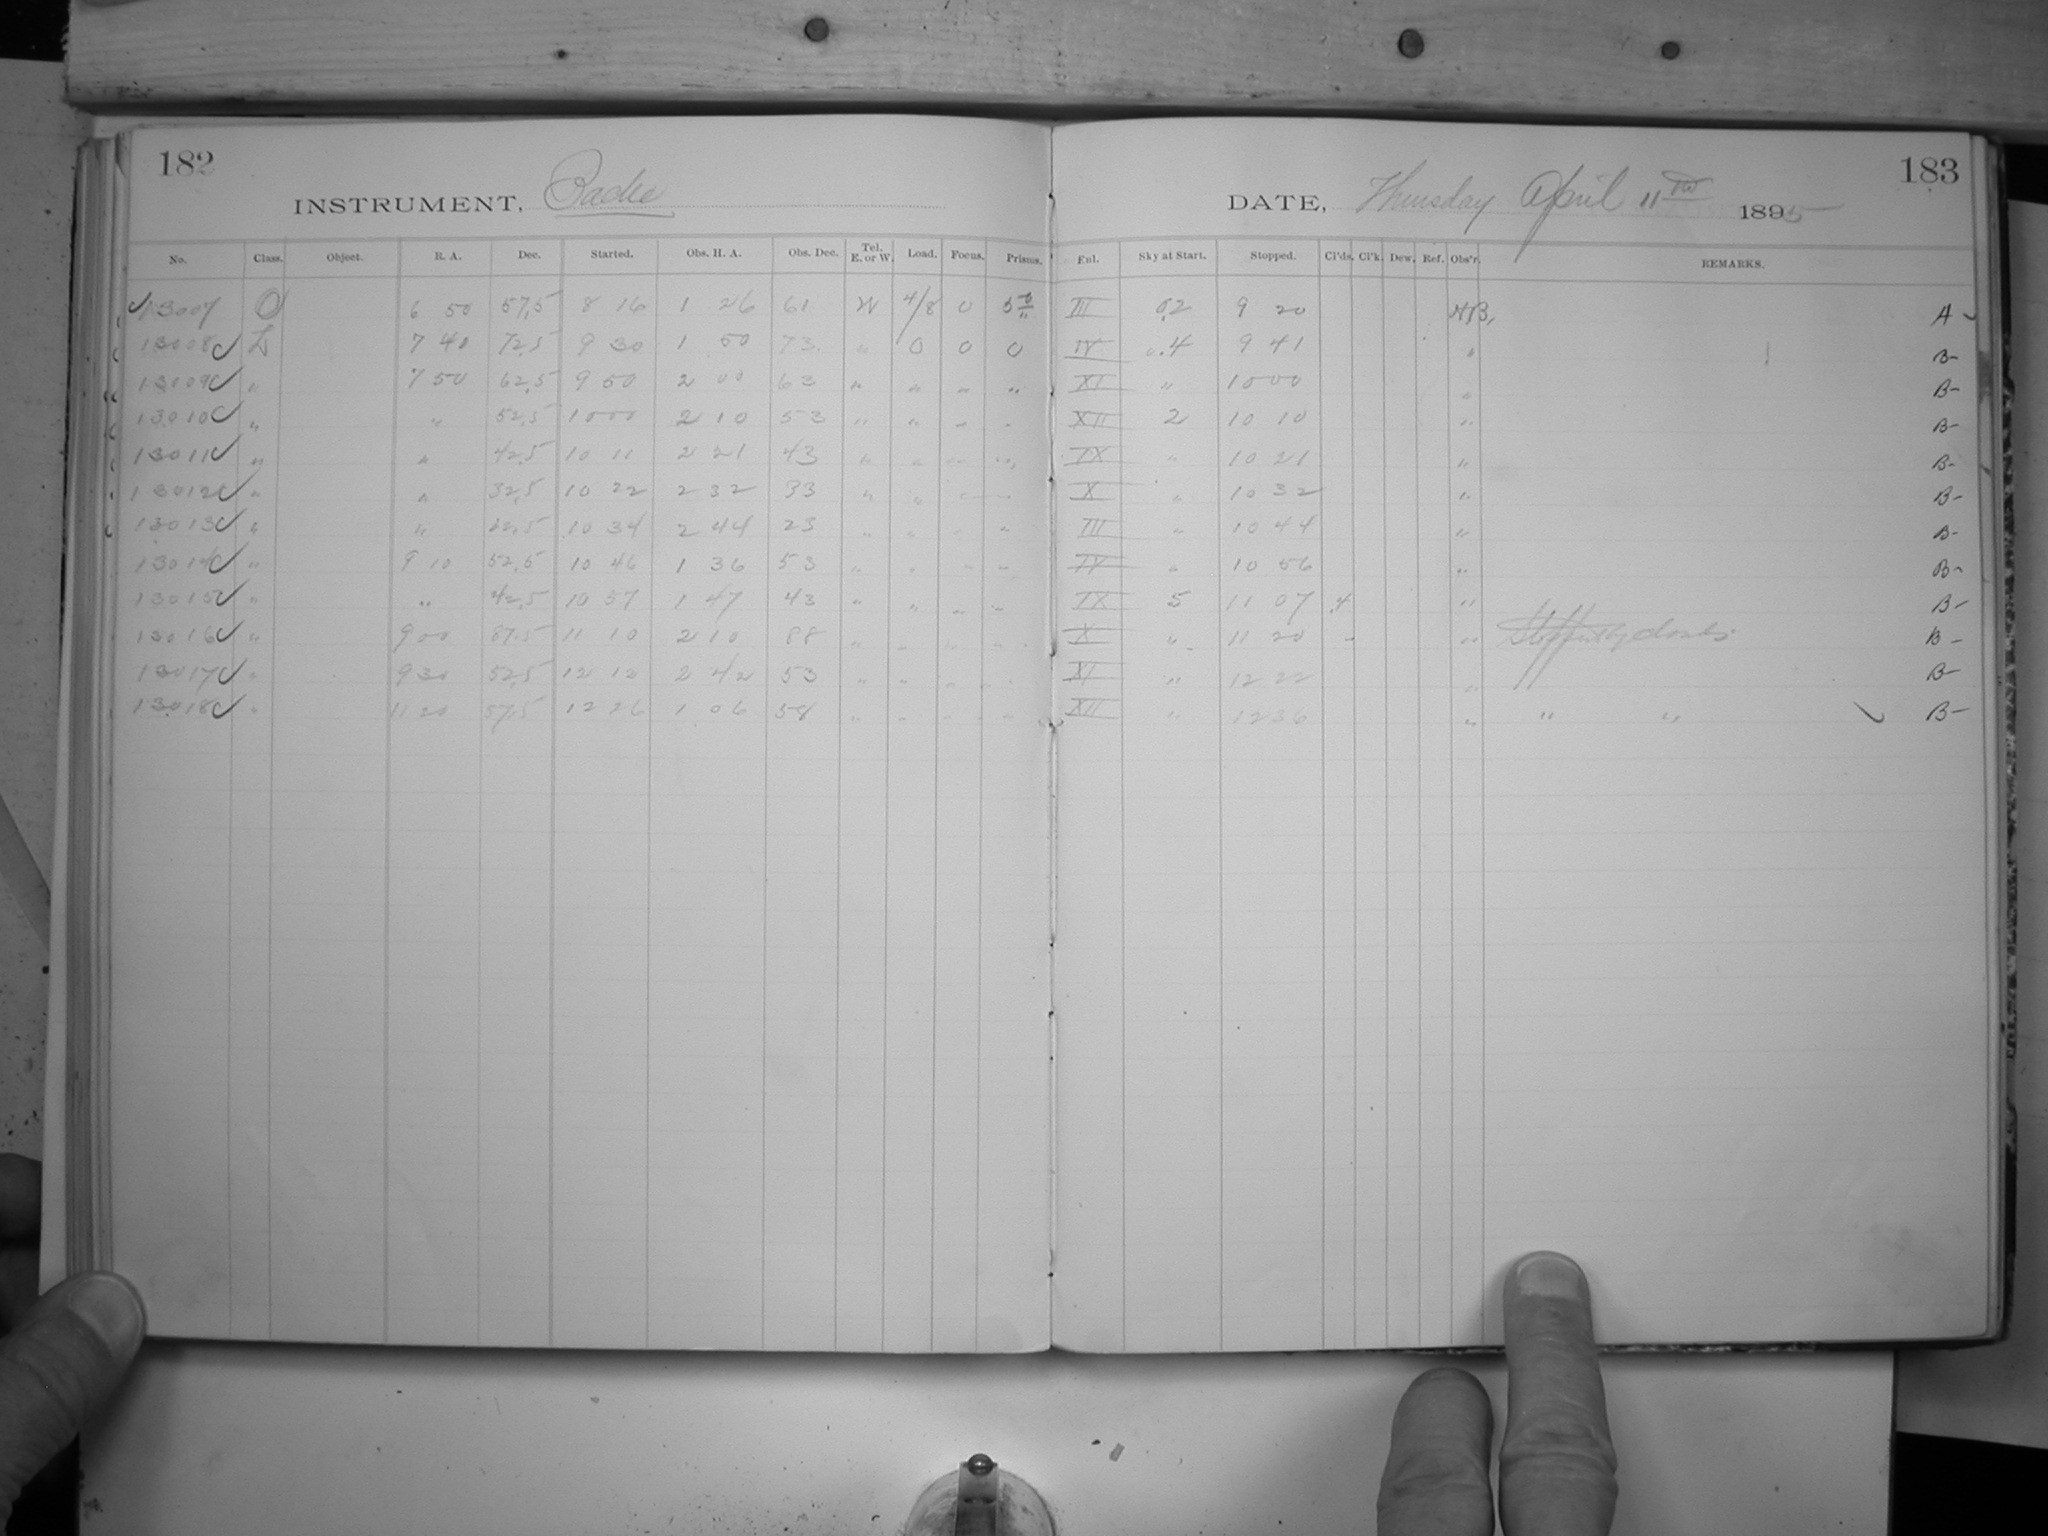 182
INSTRUMENT, Bache
DATE, Thursday April 11th 1895
183
No. Class. Object. R. A. Dec. Started. Obs. H. A. Obs. Dec. Tel. E. or W. Load. Focus. Prisms. Enl. Sky at Start. Stopped. Cl'ds. Cl'k. Dew. Ref. Obs'r. REMARKS.
13007 O 6 50 57.5 8 16 1 26 61 W 4/8 0 III 0.2 9 20 A
13008 L 7 40 72.5 9 30 1 50 73 " 0 0 0 IV 0.4 9 41 " B-
13009 " 7 50 62.5 9 50 2 00 63 " " " " XI " 10 00 " B-
13010 " " 52.5 10 00 2 10 53 " " " " XII 2 10 10 " B-
13011 " " 42.5 10 11 2 21 43 " " " " IX " 10 21 " B-
13012 " " 32.5 10 22 2 32 33 " " " " X " 10 32 " B-
13013 " " 22.5 10 34 2 44 23 " " " " III " 10 44 " B-
13014 " 9 10 52.5 10 46 1 36 53 " " " " IV " 10 56 " B-
13015 " " 42.5 10 57 1 47 43 " " " " IX 5 11 07 .4 " B-
13016 " 9 00 87.5 11 10 2 10 88 " " " " X " 11 20 " " Stopped by clouds. B-
13017 " 9 30 52.5 12 12 2 42 53 " " " " XI " 12 22 " B-
13018 " 11 20 57.5 12 26 1 06 58 " " " " XII " 12 36 " " " B-